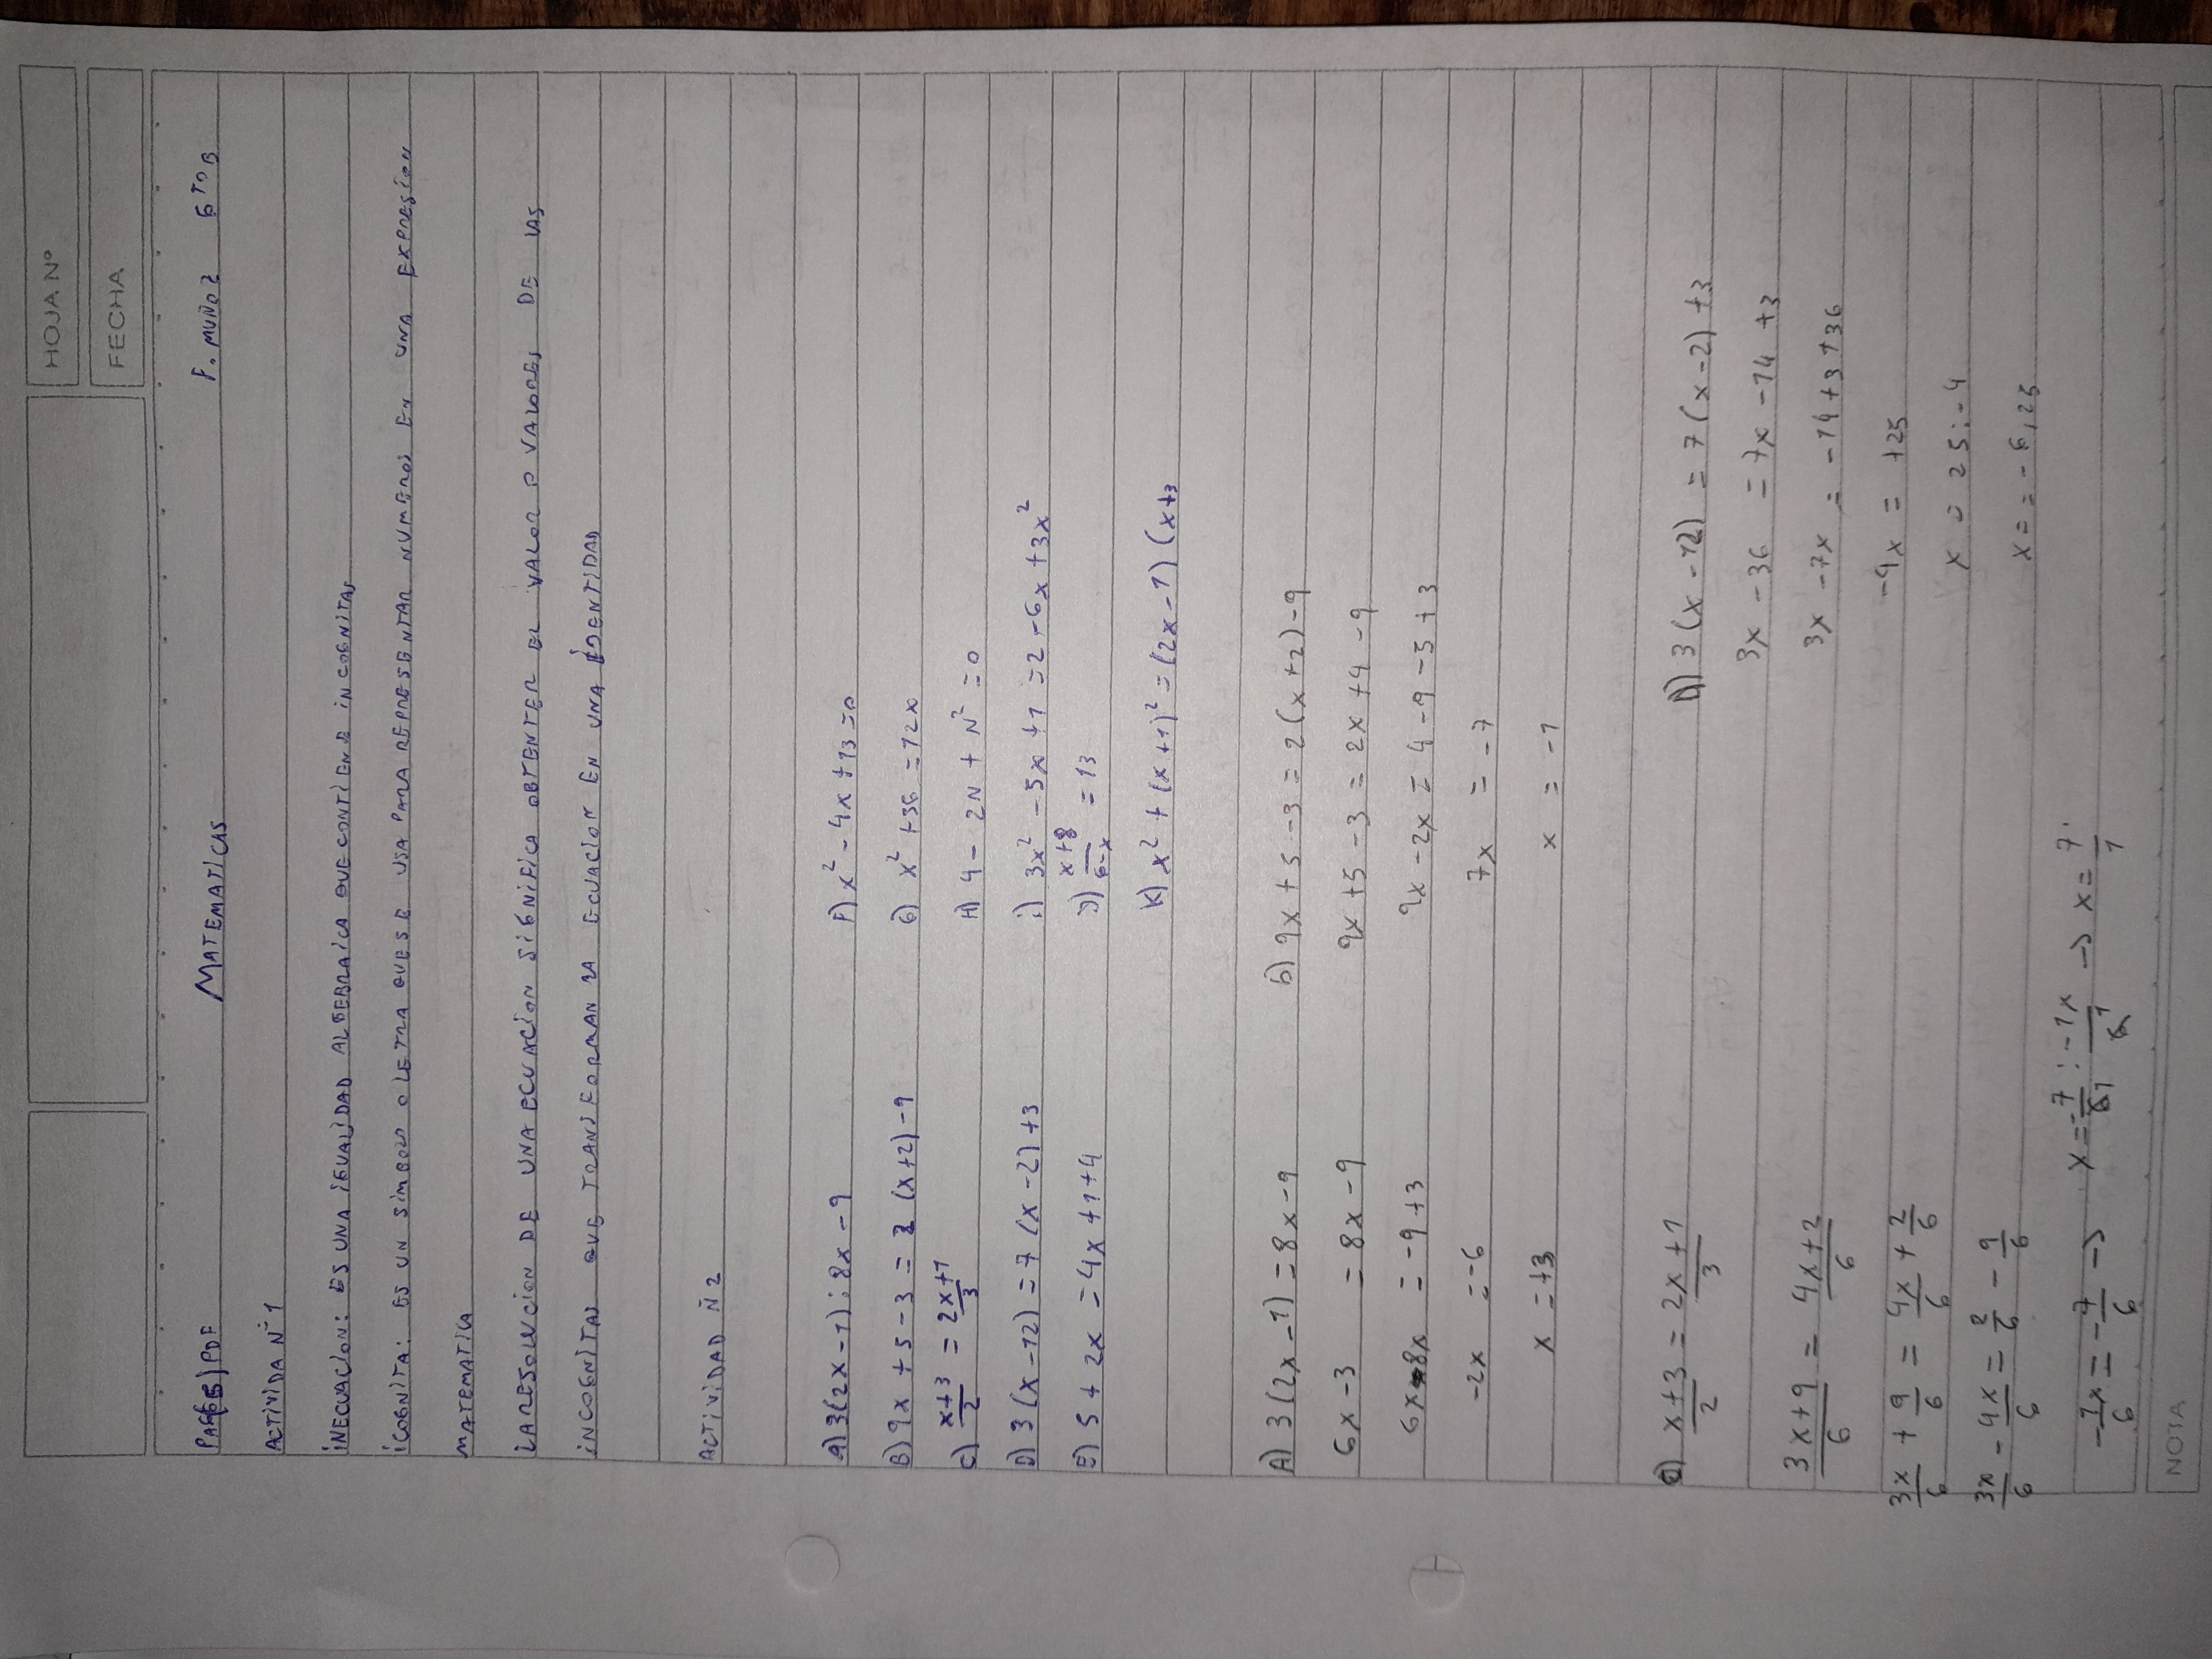 HOJA Nº
FECHA
MATEMATICAS F. MUÑOZ 6TO B
PDF
ACTIVIDA N-1
INECUACION: ES UNA IGUALIDAD ALGEBRAICA QUE CONTIENE INCOGNITAS
ICOGNITA: ES UN SIMBOLO O LETRA QUE SE USA PARA REPRESENTAR NUMEROS EN UNA EXPRESION
MATEMATICA
LA RESOLUCION DE UNA ECUACION SIGNIFICA OBTENTER EL VALOR O VALORES DE LAS
INCOGNITAS QUE TRANSFORMAN LA ECUACION EN UNA IDENTIDAD
ACTIVIDAD N 2
A) 3(2x-1): 8x-9 F) x² - 4x +13=0
B) 9x +5-3 = 2(x+2)-9 G) x² +36 =12x
C) x+3/2 = 2x+1/3 H) 4 - 2N + N² = 0
D) 3(x-12) = 7(x-2)+3 i) 3x² -5x +1 =2 -6x +3x²
E) 5+2x = 4x+1+4 J) x+8/6-x = 13
K) x² + (x+1)² = (2x-1)(x+3
A) 3(2x-1) = 8x-9 b) 9x+5-3 = 2(x+2)-9
6x-3 = 8x-9 9x+5-3 = 2x+4-9
6x-8x = -9+3 9x-2x = 4-9-5+3
-2x =-6 7x = -7
x =+3 x = -1
C) x+3/2 = 2x+1/3 D) 3(x-12) = 7(x-2)+3
3x -36 = 7x -14 +3
3x+9/6 = 4x+2/6 3x -7x = -14+3+36
3x/6 + 9/6 = 4x/6 + 2/6 -4x = +25
x = 25:-4
3x/6 - 4x/6 = 2/6 - 9/6 x= = -6,25
-1x/6 = -7/6 -> x= -7/6 : -1x/6 -> x= 7/1
NOTA